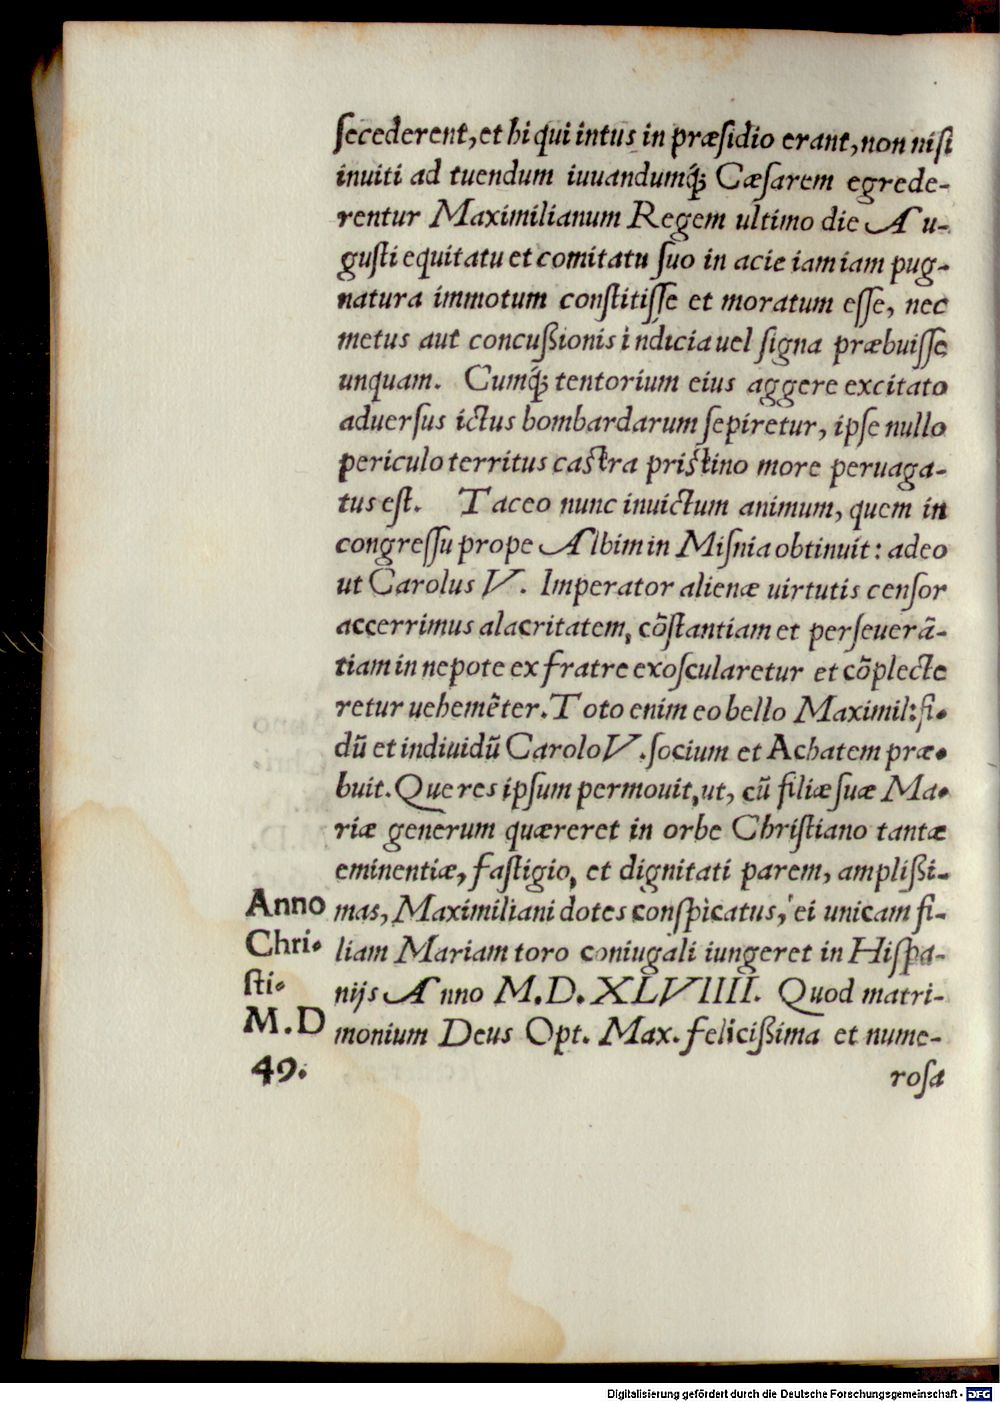 ſecederent, et hi qui intus in præſidio erant, non niſi
inuiti ad tuendum iuuandumq́; Cæſarem egrede-
rentur Maximilianum Regem ultimo die Au-
guſti equitatu et comitatu ſuo in acie iam iam pug-
natura immotum conſtitiſſe et moratum eſſe, nec
metus aut concußionis indicia uel ſigna præbuiſſe
unquam. Cumq́; tentorium eius aggere excitato
aduerſus ictus bombardarum ſepiretur, ipſe nullo
periculo territus caſtra priſtino more peruaga-
tus eſt. Taceo nunc inuictum animum, quem in
congreſſu prope Albim in Miſnia obtinuit: adeo
ut Carolus V. Imperator alienæ uirtutis cenſor
accerrimus alacritatem, cõſtantiam et perſeuerã-
tiam in nepote ex fratre exoſcularetur et cõplecte
retur uehemẽter. Toto enim eo bello Maximil: fi-
dũ et indiuidũ Carolo V. ſocium et Achatem præ-
buit. Que res ipſum permouit, ut, cũ filiæ ſuæ Ma-
riæ generum quæreret in orbe Chriſtiano tantæ
eminentiæ, faſtigio, et dignitati parem, amplißi-
mas, Maximiliani dotes conſpicatus, ei unicam fi-
liam Mariam toro coniugali iungeret in Hiſpa-
nijs Anno M.D.XLVIIII. Quod matri-
monium Deus Opt. Max. felicißima et nume-
roſa
Anno
Chri-
ſti-
M.D
49.
Digitalisierung gefördert durch die Deutsche Forschungsgemeinschaft - DFG